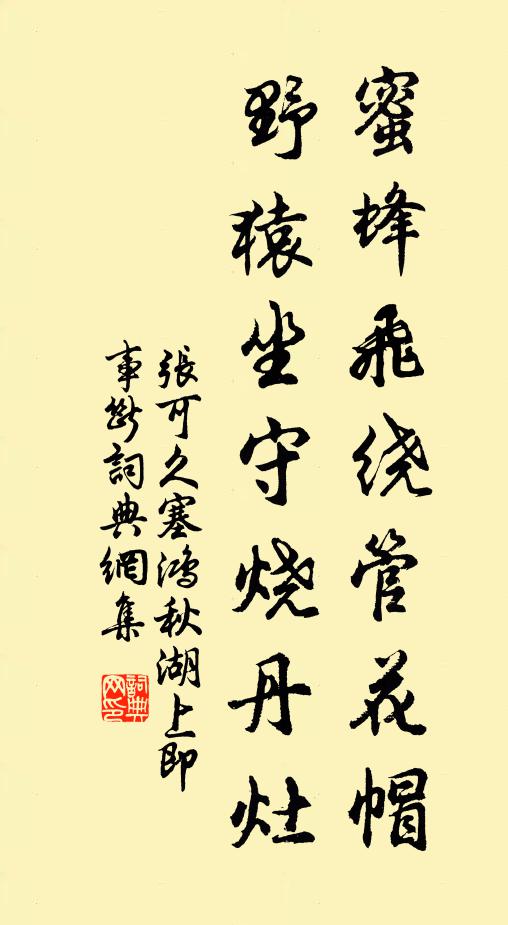 蜜蜂飛绕管花帽
野猿坐守烧丹灶
張可久塞鴻秋湖上即
事齣詞典網集
詞典
网印